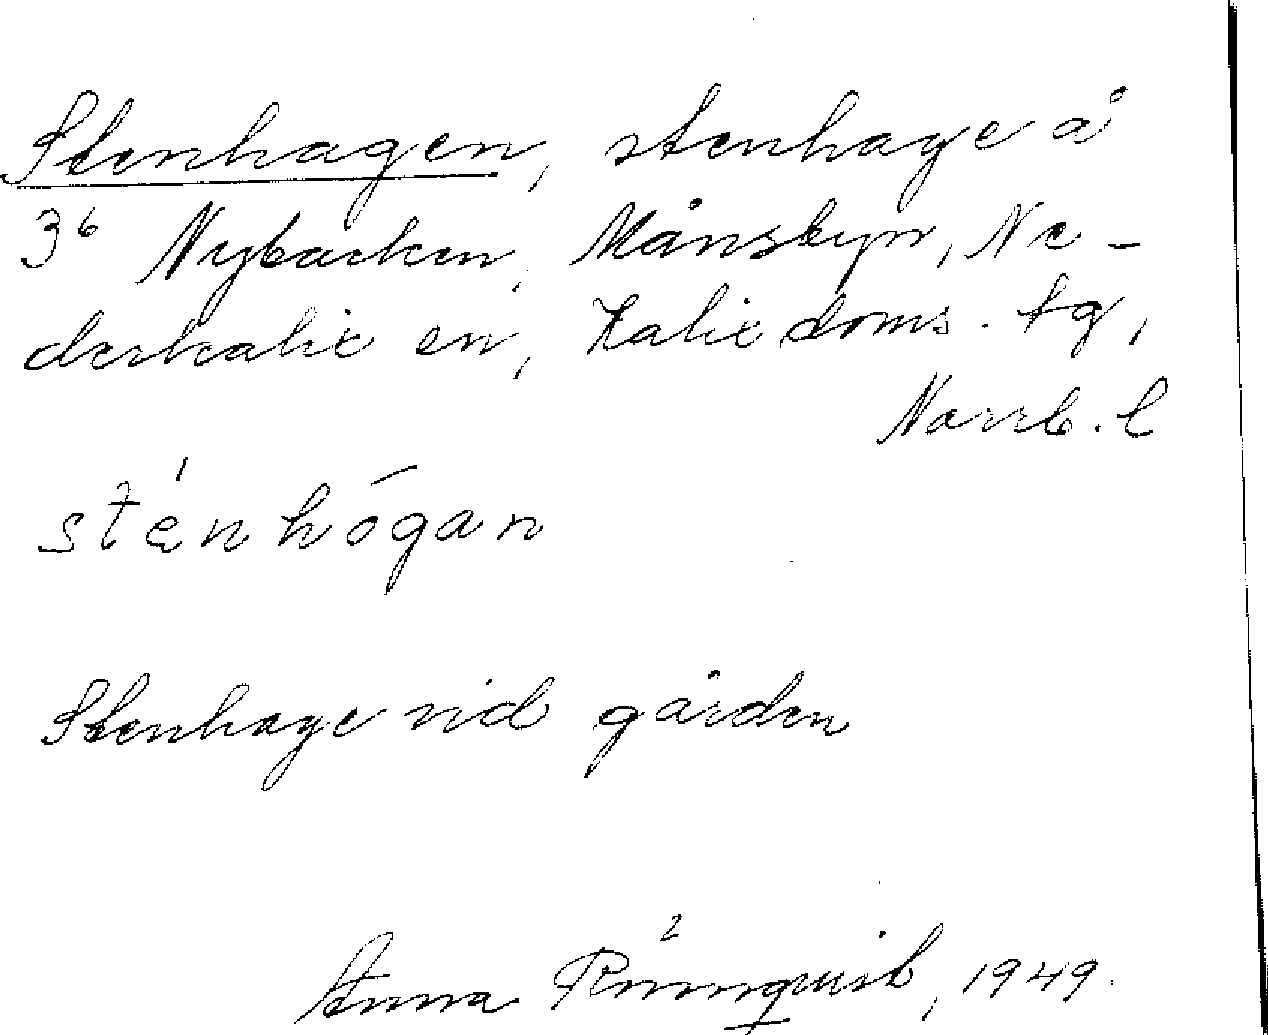 Stenhagen, stenhage å
3⁶ Nybacken, Månsbyn, Ne-
derkalix sn, Kalix doms. tg,
Norrb. l
sténhógan
Stenhage vid gården
Anna Rönnquist, 1949.